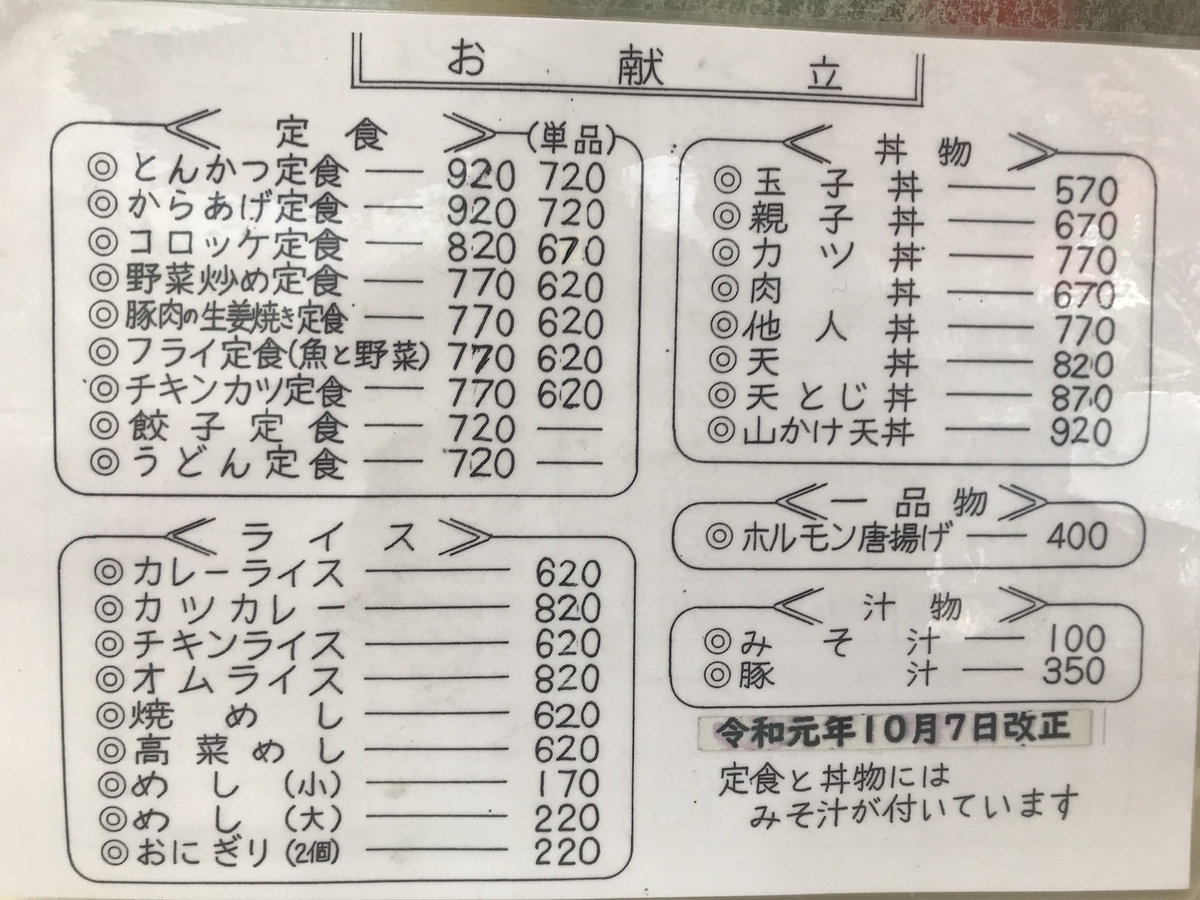 お献立
定食 (単品)
◎とんかつ定食 ― 920 720
◎からあげ定食 ― 920 720
◎コロッケ定食 ― 820 670
◎野菜炒め定食 ― 770 620
◎豚肉の生姜焼き定食 ― 770 620
◎フライ定食(魚と野菜) 770 620
◎チキンカツ定食 ― 770 620
◎餃子定食 ― 720 ―
◎うどん定食 ― 720 ―
ライス
◎カレーライス ― 620
◎カツカレー ― 820
◎チキンライス ― 620
◎オムライス ― 820
◎焼めし ― 620
◎高菜めし ― 620
◎めし(小) ― 170
◎めし(大) ― 220
◎おにぎり(2個) ― 220
丼物
◎玉子丼 ― 570
◎親子丼 ― 670
◎カツ丼 ― 770
◎肉丼 ― 670
◎他人丼 ― 770
◎天丼 ― 820
◎天とじ丼 ― 870
◎山かけ天丼 ― 920
一品物
◎ホルモン唐揚げ ― 400
汁物
◎みそ汁 ― 100
◎豚汁 ― 350
令和元年10月7日改正
定食と丼物には
みそ汁が付いています